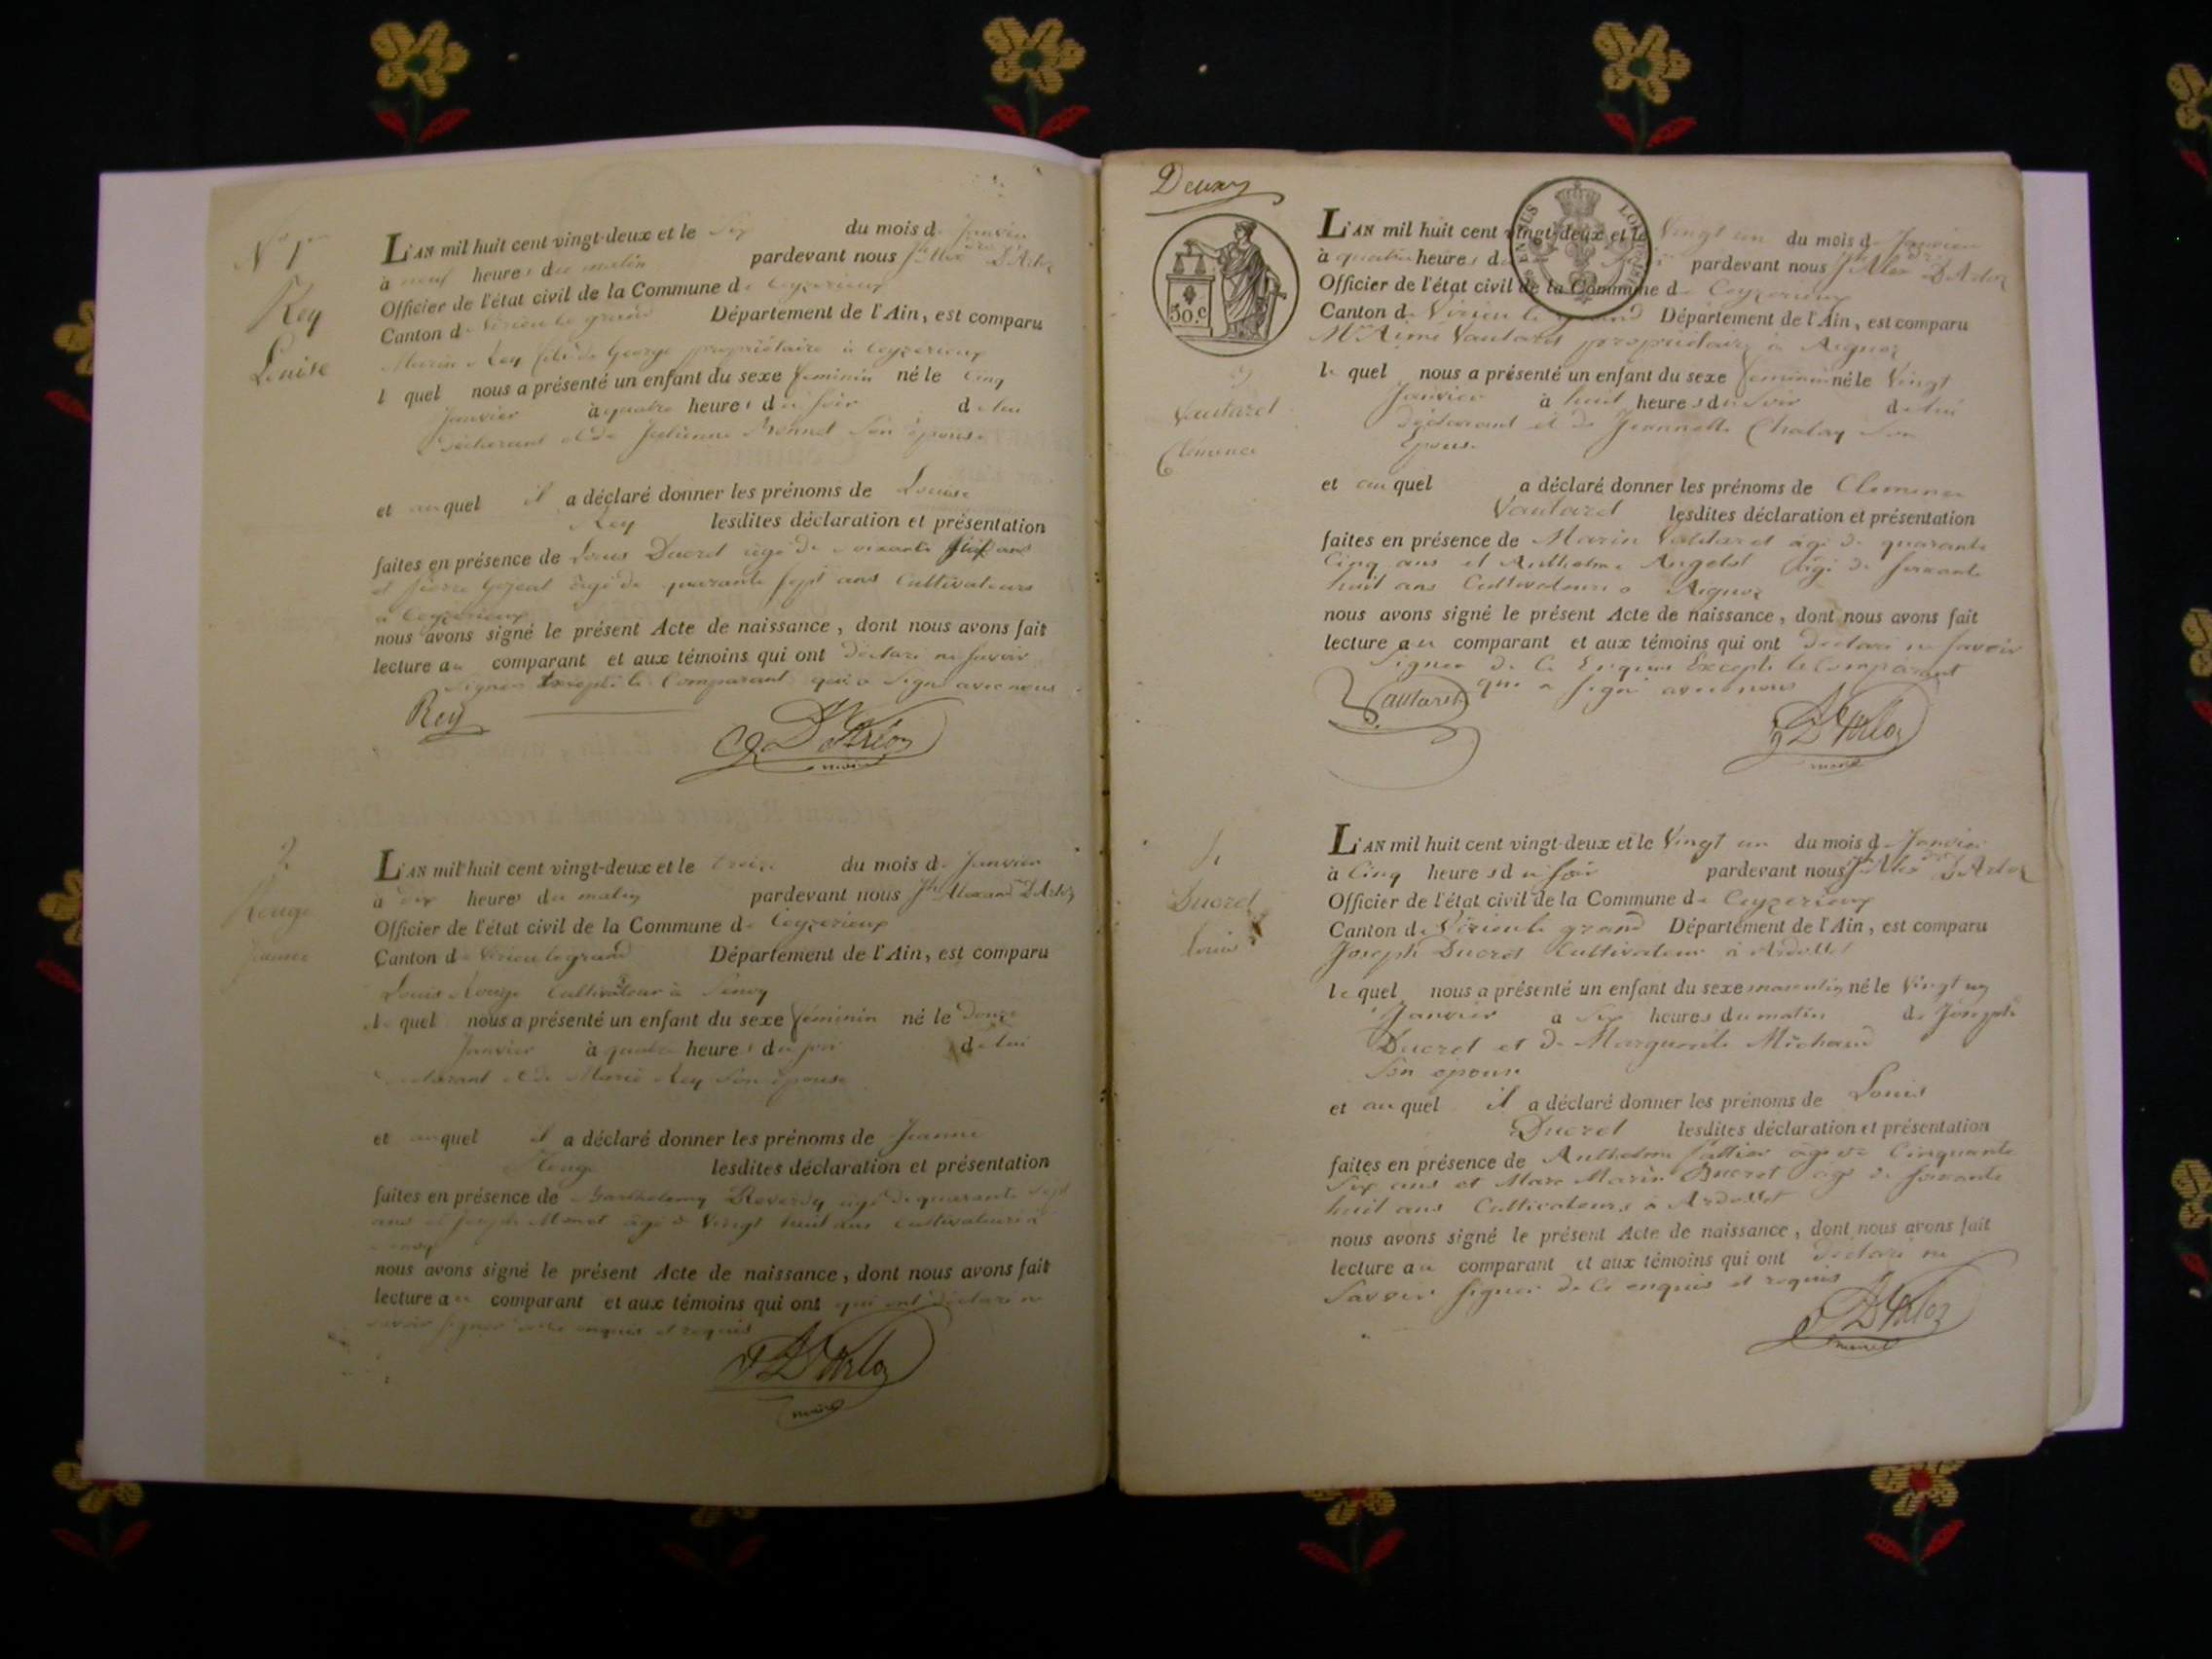 N° 1er
Rey
Louise
L'AN mil huit cent vingt-deux et le Six du mois de Janvier
à neuf heures du matin pardevant nous Jh Alex dre D'Arloz
Officier de l'état civil de la Commune de Ceyzerieux
Canton de Virieu le grand Département de l'Ain, est comparu
Marin Rey fils de George propriétaire à Ceyzerieux
lequel nous a présenté un enfant du sexe feminin né le Cinq
Janvier à quatre heures du Soir de lui
déclarant et de Julienne Monnet Son épouse
et auquel il a déclaré donner les prénoms de Louise
Rey lesdites déclaration et présentation
faites en présence de Louis Ducret âgé de soixante ans
et pierre âgé de quarante Sept ans Cultivateurs
à Ceyzerieux
nous avons signé le présent Acte de naissance, dont nous avons fait
lecture au comparant et aux témoins qui ont déclaré ne Savoir
Signer Excepté le Comparant qui a Signé avec nous
Rey D'Arloz
maire
2
Rouge
Jeanne
L'AN mil huit cent vingt-deux et le treize du mois de Janvier
à dix heures du matin pardevant nous Jh Alexandre D'Arloz
Officier de l'état civil de la Commune de Ceyzerieux
Canton de Virieu le grand Département de l'Ain, est comparu
Louis Rouge Cultivateur à Senoy
lequel nous a présenté un enfant du sexe féminin né le Douze
Janvier à quatre heures du soir de lui
déclarant et de Marie Rey Son épouse
et auquel il a déclaré donner les prénoms de Jeanne
Rouge lesdites déclaration et présentation
faites en présence de Barthelemy Reverdy âgé de quarante Sept
ans et Joseph Monet âgé de Vingt huit ans Cultivateurs à
Senoy
nous avons signé le présent Acte de naissance, dont nous avons fait
lecture au comparant et aux témoins qui ont qui ont déclaré ne
savoir signer de ce enquis et requis
D'Arloz
maire
Deux
30. c
L'AN mil huit cent vingt-deux et le Vingt un du mois de Janvier
à quatre heures du Soir pardevant nous Jh Alex dre D'Arloz
Officier de l'état civil de la Commune de Ceyzerieux
Canton de Virieu le grand Département de l'Ain, est comparu
Mr Aimé Vautaret propriétaire à Aignoz
3
Vautaret
Clémence
lequel nous a présenté un enfant du sexe feminin né le Vingt
Janvier à huit heures du Soir de lui
déclarant et de Jeannette Chalay Son
Epouse
et auquel a déclaré donner les prénoms de Clemence
Vautaret lesdites déclaration et présentation
faites en présence de Marin Vautaret âgé de quarante
Cinq ans et Anthelme Angelot âgé de soixante
huit ans Cultivateurs à Aignoz
nous avons signé le présent Acte de naissance, dont nous avons fait
lecture au comparant et aux témoins qui ont déclaré ne savoir
Signer de Ce Enquis Excepté le Comparant
qui a signé avec nous
Vautaret D'Arloz
maire
4
Ducret
Louis
L'AN mil huit cent vingt-deux et le Vingt un du mois de Janvier
à Cinq heures du soir pardevant nous Jh Alex dre D'Arloz
Officier de l'état civil de la Commune de Ceyzerieux
Canton de Virieu le grand Département de l'Ain, est comparu
Joseph Ducret Cultivateur à Ardosset
lequel nous a présenté un enfant du sexe masculin né le Vingt un
Janvier à Six heures du matin de Joseph
Ducret et de Marguerite Michaud
Son epouse
et auquel il a déclaré donner les prénoms de Louis
Ducret lesdites déclaration et présentation
faites en présence de Anthelme âgé de Cinquante
Six ans et Marc Marin Ducret âgé de soixante
huit ans Cultivateurs à Ardosset
nous avons signé le présent Acte de naissance, dont nous avons fait
lecture au comparant et aux témoins qui ont déclaré ne
Savoir signer de Ce enquis et requis
D'Arloz
maire